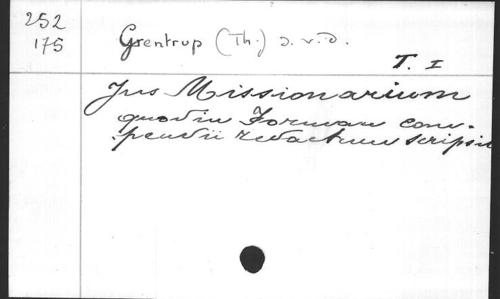 252
175
Grentrup (Th.) s. v. d.
T. I
Jus Missionarium
quod in Formam com-
pendii redactum scripsit